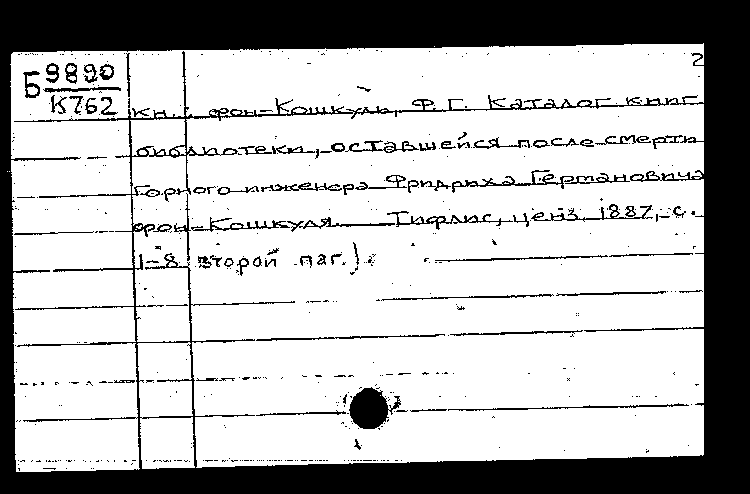 2
Б 9890
К762
кн.: фон-Кошкуль, Ф.Г. Каталог книг
библиотеки, оставшейся после смерти
горного инженера Фридриха Германовича
фон-Кошкуля. Тифлис, ценз. 1887, с.
1-8 второй паг.)